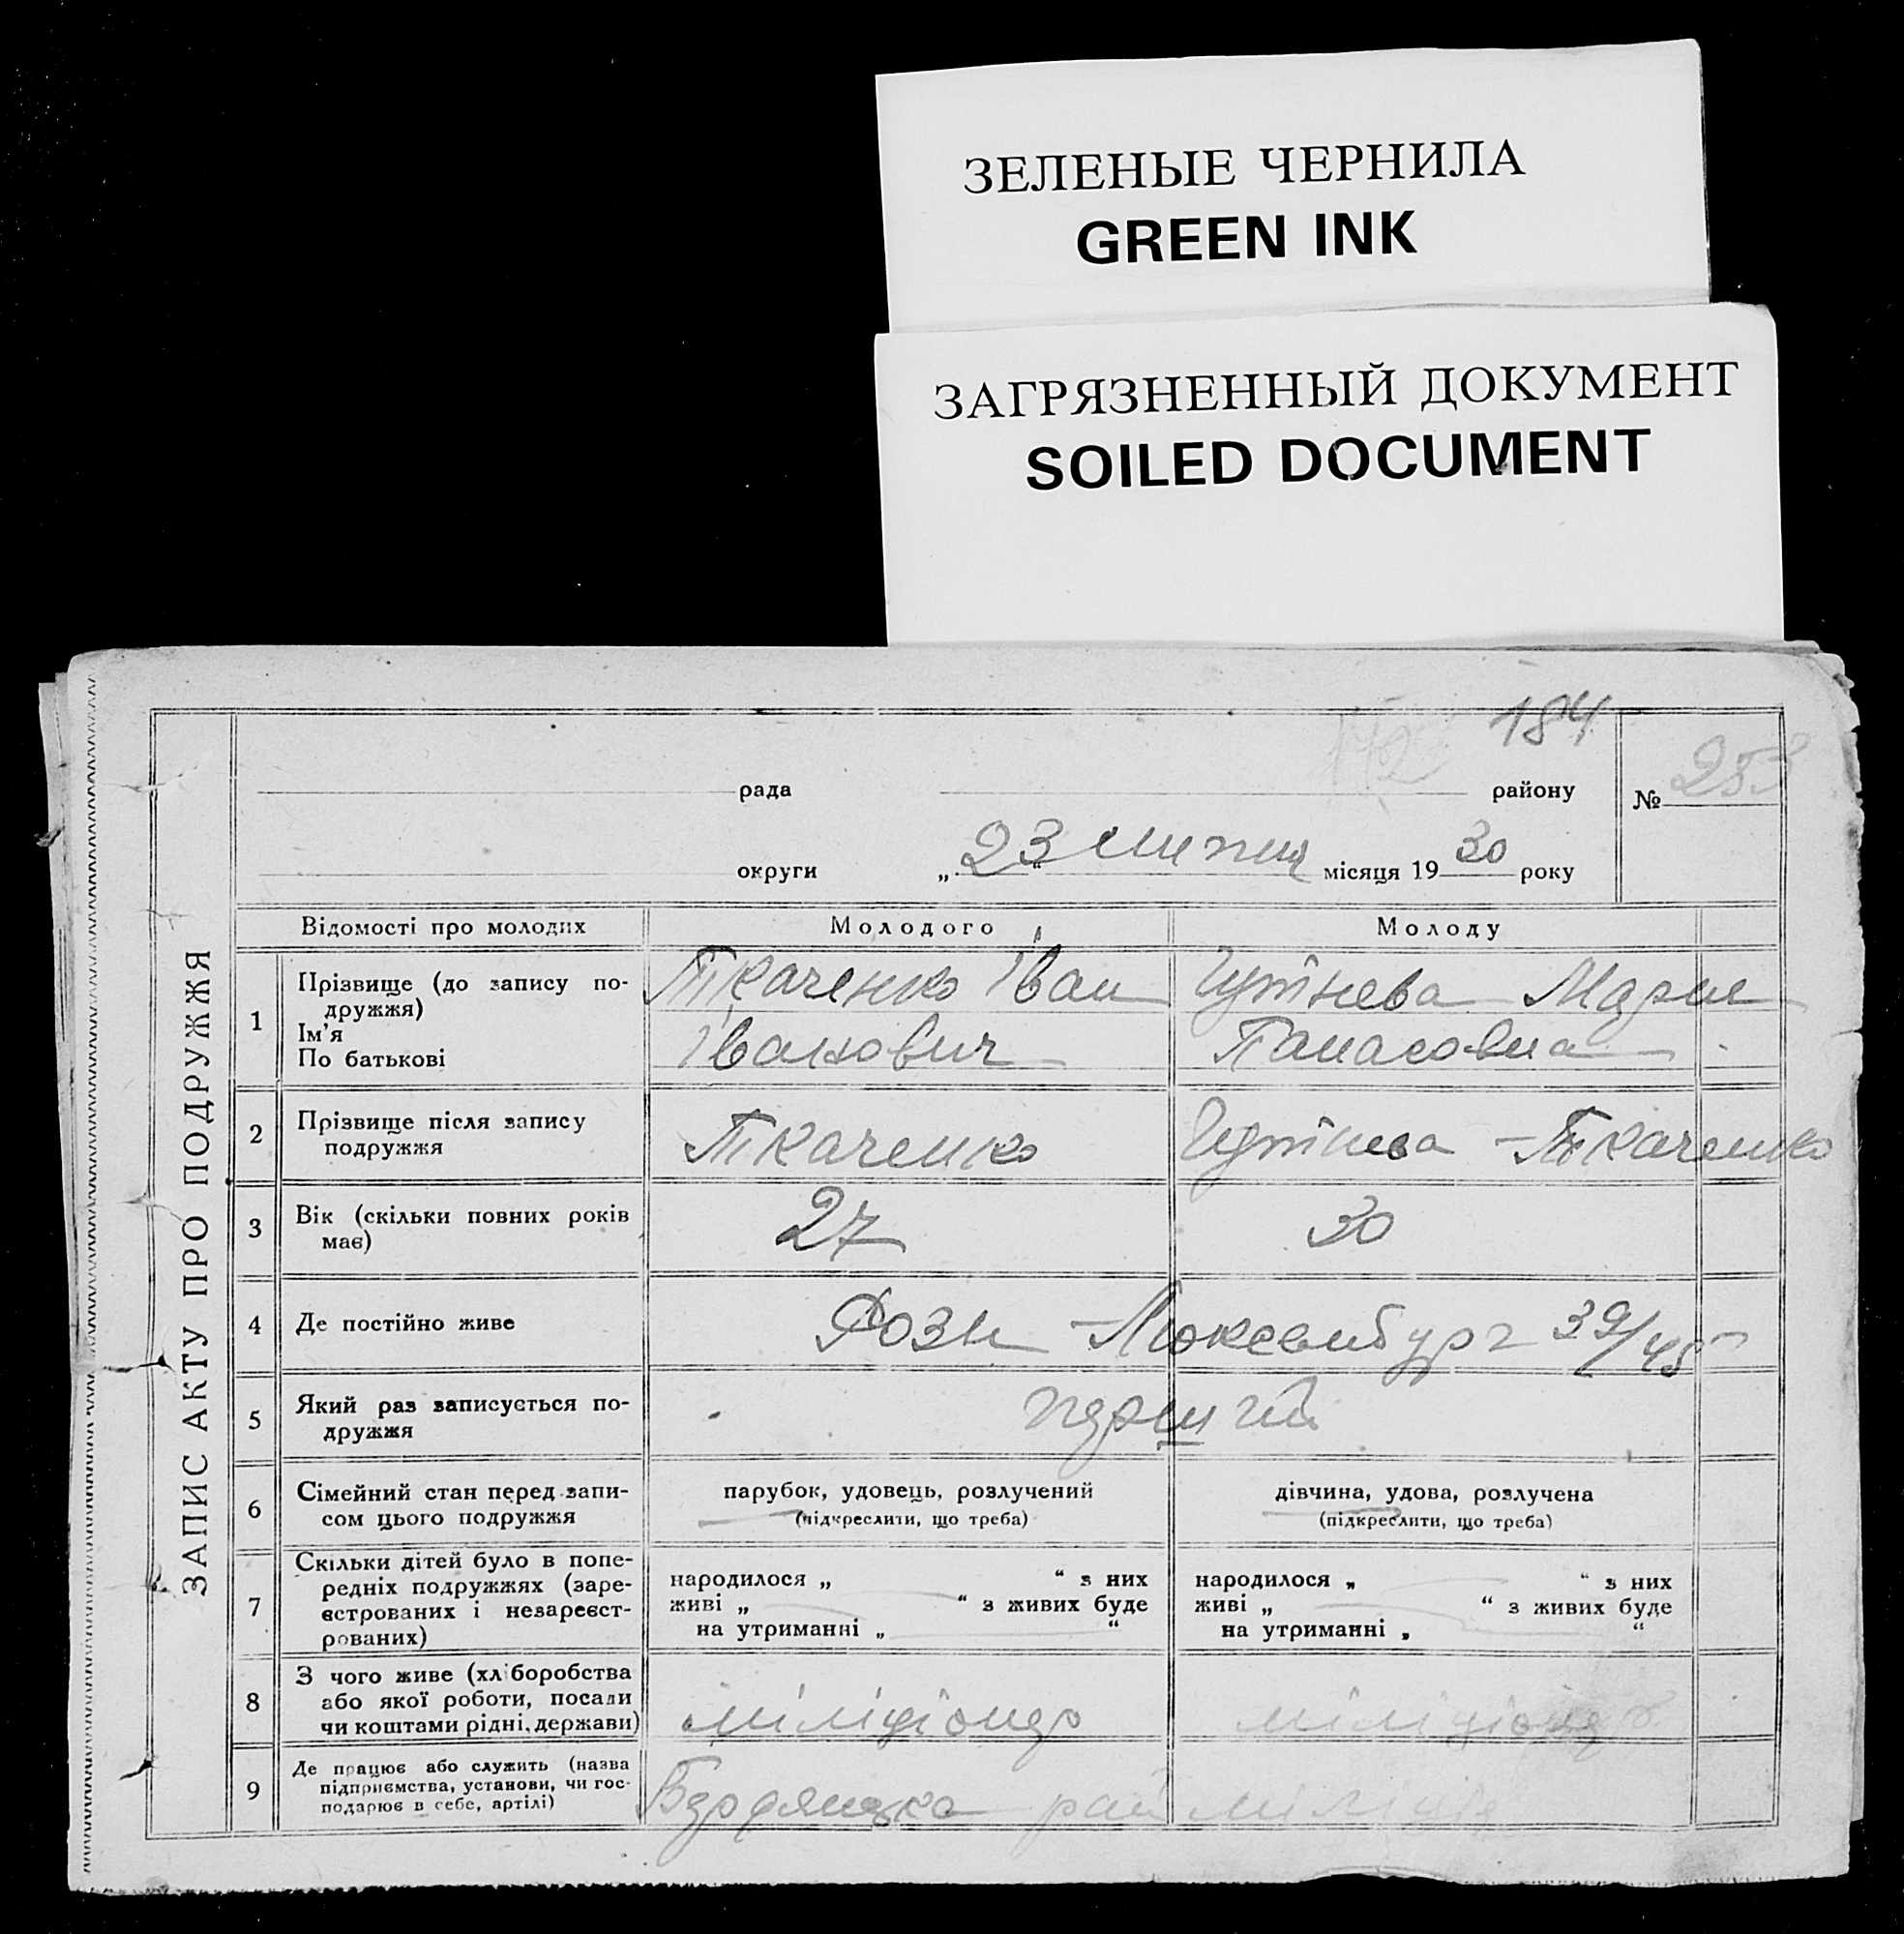 ЗЕЛЕНЫЕ ЧЕРНИЛА
GREEN INK
ЗАГРЯЗНЕННЫЙ ДОКУМЕНТ
SOILED DOCUMENT
184
ЗАПИС АКТУ ПРО ПОДРУЖЖЯ
рада району №
округи „23“ липня місяця 1930 року
Відомості про молодих Молодого Молоду
1 Прізвище (до запису по-
дружжя)
Ім'я
По батькові
Ткаченко Іван
Іванович
Марие
Панасовна
2 Прізвище після запису
подружжя
Ткаченко
-Ткаченко
3 Вік (скільки повних років
має)
27 30
4 Де постійно живе Рози -Люксембург 39/45
5 Який раз записується по-
дружжя
перший
6 Сімейний стан перед запи-
сом цього подружжя
парубок, удовець, розлучений
(підкреслити, що треба)
дівчина, удова, розлучена
(підкреслити, що треба)
7 Скільки дітей було в попе-
редніх подружжях (заре-
єстрованих і незареєст-
рованих)
народилося „ “ з них
живі „ “ з живих буде
на утриманні „ “
народилося „ “ з них
живі „ “ з живих буде
на утриманні „ “
8 З чого живе (хліборобства
або якої роботи, посади
чи коштами рідні, держави)
міліціонер
міліціонер
9 Де працює або служить (назва
підприємства, установи, чи гос-
подарює в себе, артілі)
Бердянська рай міліція